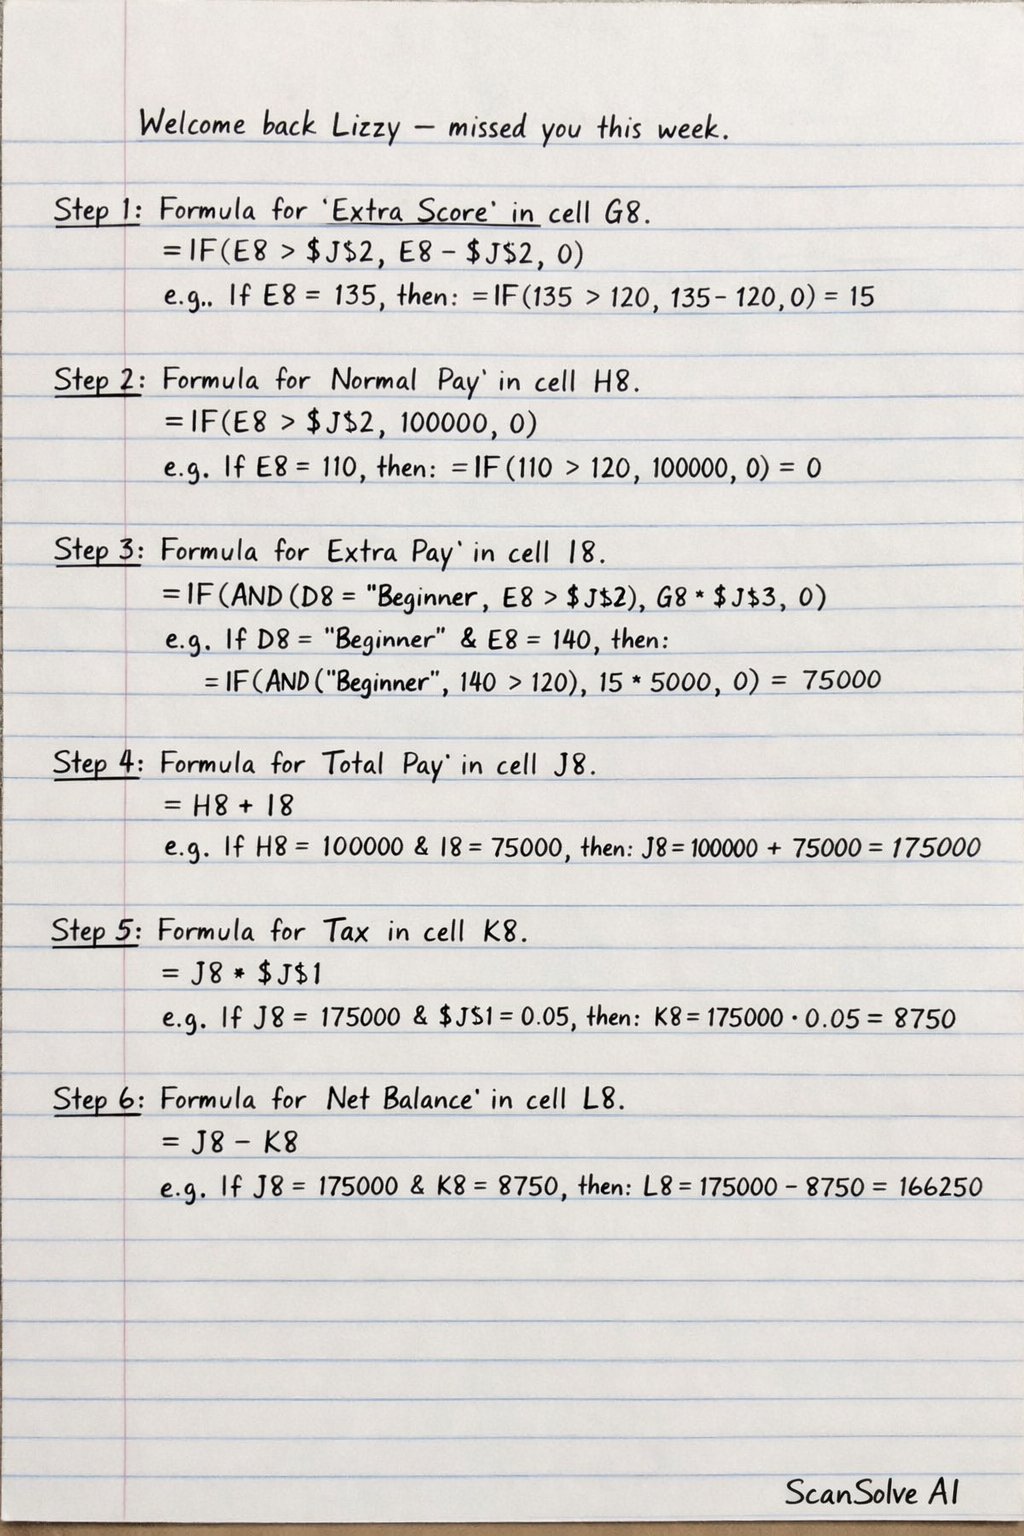 Welcome back Lizzy – missed you this week.
Step 1: Formula for 'Extra Score' in cell G8.
= IF(E8 > $J$2, E8 - $J$2, 0)
e.g.. If E8 = 135, then: =IF(135 > 120, 135-120,0) = 15
Step 2: Formula for Normal Pay' in cell H8.
= IF(E8 > $J$2, 100000, 0)
e.g. If E8 = 110, then: =IF(110 > 120, 100000, 0) = 0
Step 3: Formula for Extra Pay' in cell I8.
= IF(AND(D8 = "Beginner, E8 > $J$2), G8 * $J$3, 0)
e.g. If D8 = "Beginner" & E8 = 140, then:
= IF(AND("Beginner", 140 > 120), 15 * 5000, 0) = 75000
Step 4: Formula for Total Pay' in cell J8.
= H8 + I8
e.g. If H8 = 100000 & I8 = 75000, then: J8=100000 + 75000 = 175000
Step 5: Formula for Tax in cell K8.
= J8 * $J$1
e.g. If J8 = 175000 & $J$1 = 0.05, then: K8=175000 · 0.05 = 8750
Step 6: Formula for Net Balance' in cell L8.
= J8 - K8
e.g. If J8 = 175000 & K8 = 8750, then: L8=175000 - 8750 = 166250
ScanSolve AI